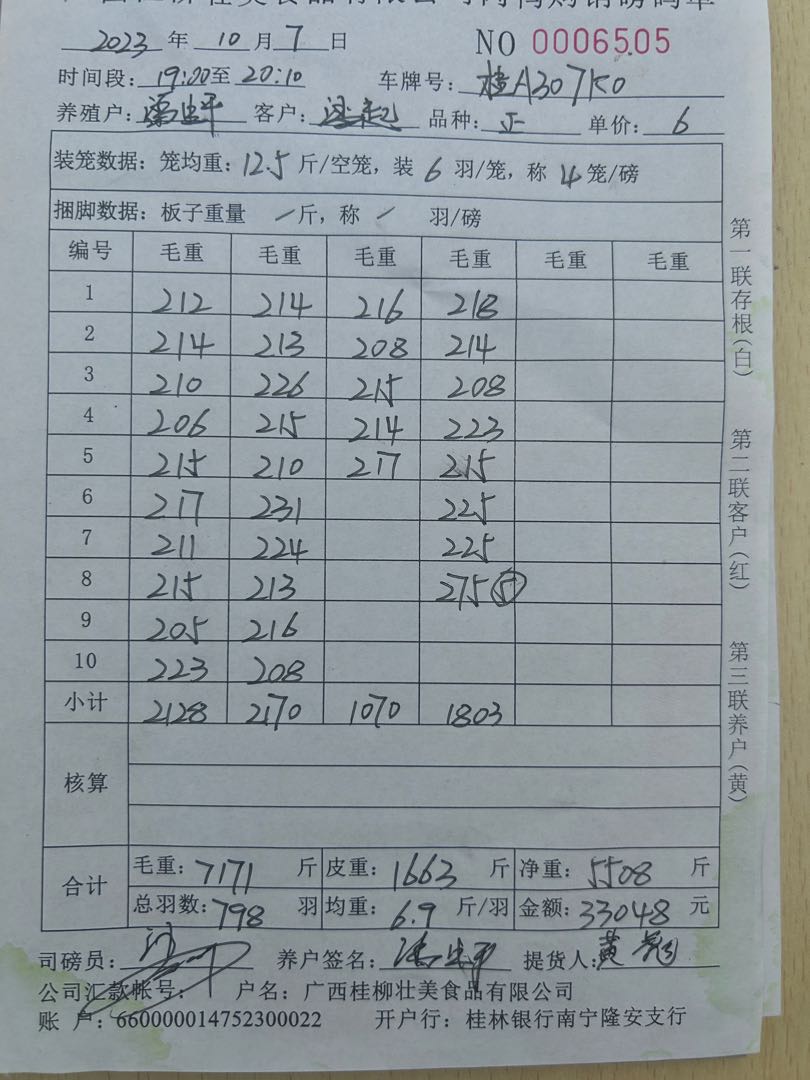 2023 年 10 月 7 日 NO 0006505
时间段: 19:00至 20:10 车牌号: 桂A307K0
养殖户: 客户: 品种: 正 单价: 6
装笼数据: 笼均重: 12.5 斤/空笼, 装 6 羽/笼, 称 4 笼/磅
捆脚数据: 板子重量 / 斤, 称 / 羽/磅
编号 毛重 毛重 毛重 毛重 毛重 毛重
1 212 214 216 218
2 214 213 208 214
3 210 226 215 208
4 206 215 214 223
5 215 210 217 215
6 217 231 225
7 211 224 225
8 215 213 275 ⑤
9 205 216
10 223 208
小计 2128 2170 1070 1803
核算
合计 毛重: 7171 斤 皮重: 1663 斤 净重: 5508 斤
总羽数: 798 羽 均重: 6.9 斤/羽 金额: 33048 元
司磅员: 养户签名: 提货人: 黄
公司汇款帐号: 户名: 广西桂柳壮美食品有限公司
账 户: 660000014752300022 开户行: 桂林银行南宁隆安支行
第一联存根(白)
第二联客户(红)
第三联养户(黄)